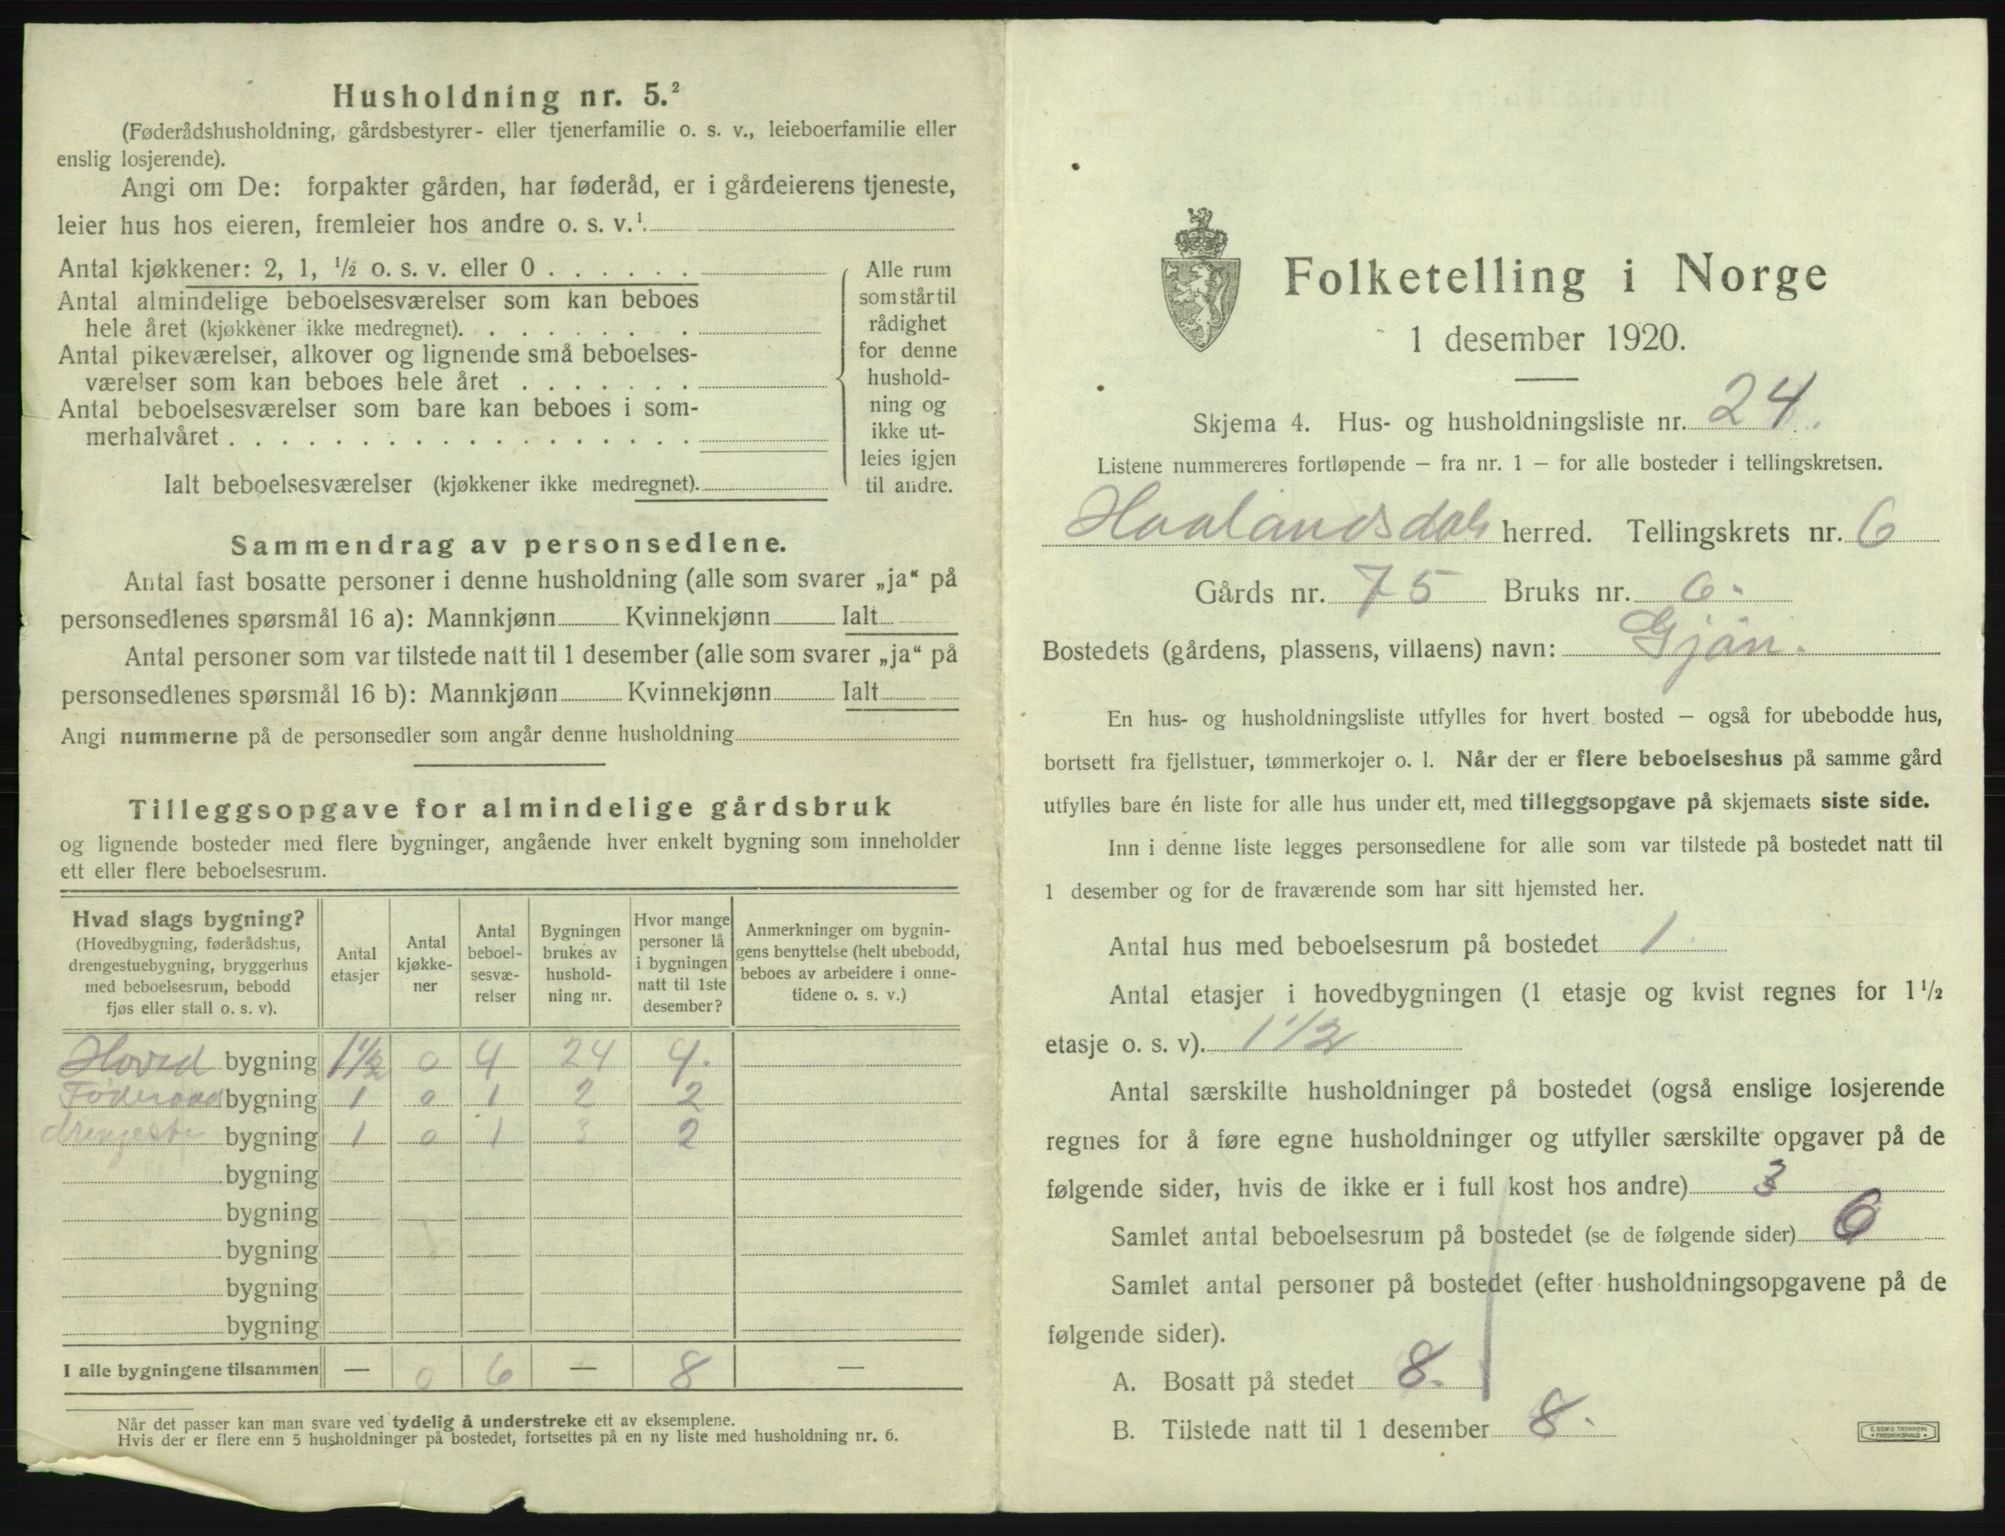 Husholdning nr. 5.²
(Føderådshusholdning, gårdsbestyrer- eller tjenerfamilie o. s. v., leieboerfamilie eller
enslig losjerende).
Angi om De: forpakter gården, har føderåd, er i gårdeierens tjeneste,
leier hus hos eieren, fremleier hos andre o. s. v.¹
Antal kjøkkener: 2, 1, ½ o. s. v. eller 0 . . . . . .
Antal almindelige beboelsesværelser som kan beboes
hele året (kjøkkener ikke medregnet). . . . . . . . .
Antal pikeværelser, alkover og lignende små beboelses-
værelser som kan beboes hele året . . . . . . .
Antal beboelsesværelser som bare kan beboes i som-
merhalvåret . . . . . . . . . . . . . . . . . .
Ialt beboelsesværelser (kjøkkener ikke medregnet).
Alle rum
som står til
rådighet
for denne
hushold-
ning og
ikke ut-
leies igjen
til andre.
Sammendrag av personsedlene.
Antal fast bosatte personer i denne husholdning (alle som svarer „ja“ på
personsedlenes spørsmål 16 a): Mannkjønn Kvinnekjønn Ialt
Antal personer som var tilstede natt til 1 desember (alle som svarer „ja“ på
personsedlenes spørsmål 16 b): Mannkjønn Kvinnekjønn Ialt
Angi nummerne på de personsedler som angår denne husholdning
Tilleggsopgave for almindelige gårdsbruk
og lignende bosteder med flere bygninger, angående hver enkelt bygning som inneholder
ett eller flere beboelsesrum.
Hvad slags bygning?
(Hovedbygning, føderådshus,
drengestuebygning, bryggerhus
med beboelsesrum, bebodd
fjøs eller stall o. s. v).
Antal
etasjer
Antal
kjøkke-
ner
Antal
beboel-
sesvæ-
relser
Bygningen
brukes av
hushold-
ning nr.
Hvor mange
personer lå
i bygningen
natt til 1ste
desember?
Anmerkninger om bygnin-
gens benyttelse (helt ubebodd,
beboes av arbeidere i onne-
tidene o. s. v.)
Hoved bygning 1½ 0 4 24 4.
Føderaad bygning 1 0 1 2 2
drengestu bygning 1 0 1 3 2
bygning
bygning
bygning
bygning
bygning
I alle bygningene tilsammen — 0 6 — 8 —
Når det passer kan man svare ved tydelig å understreke ett av eksemplene.
Hvis der er flere enn 5 husholdninger på bostedet, fortsettes på en ny liste med husholdning nr. 6.
Folketelling i Norge
1 desember 1920.
Skjema 4. Hus- og husholdningsliste nr. 24.
Listene nummereres fortløpende – fra nr. 1 – for alle bosteder i tellingskretsen.
Haalandsdals herred. Tellingskrets nr. 6
Gårds nr. 75 Bruks nr. 6.
Bostedets (gårdens, plassens, villaens) navn: Gjøn.
En hus- og husholdningsliste utfylles for hvert bosted – også for ubebodde hus,
bortsett fra fjellstuer, tømmerkojer o. l. Når der er flere beboelseshus på samme gård
utfylles bare én liste for alle hus under ett, med tilleggsopgave på skjemaets siste side.
Inn i denne liste legges personsedlene for alle som var tilstede på bostedet natt til
1 desember og for de fraværende som har sitt hjemsted her.
Antal hus med beboelsesrum på bostedet 1
Antal etasjer i hovedbygningen (1 etasje og kvist regnes for 1½
etasje o. s. v). 1½
Antal særskilte husholdninger på bostedet (også enslige losjerende
regnes for å føre egne husholdninger og utfyller særskilte opgaver på de
følgende sider, hvis de ikke er i full kost hos andre) 3
Samlet antal beboelsesrum på bostedet (se de følgende sider) 6
Samlet antal personer på bostedet (efter husholdningsopgavene på de
følgende sider).
A. Bosatt på stedet 8.
B. Tilstede natt til 1 desember 8.
E. SEMS TRYKKERI
FREDRIKSHALD